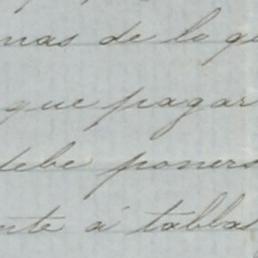 mas de lo qu
que pagar
debe poners
nte á tablas